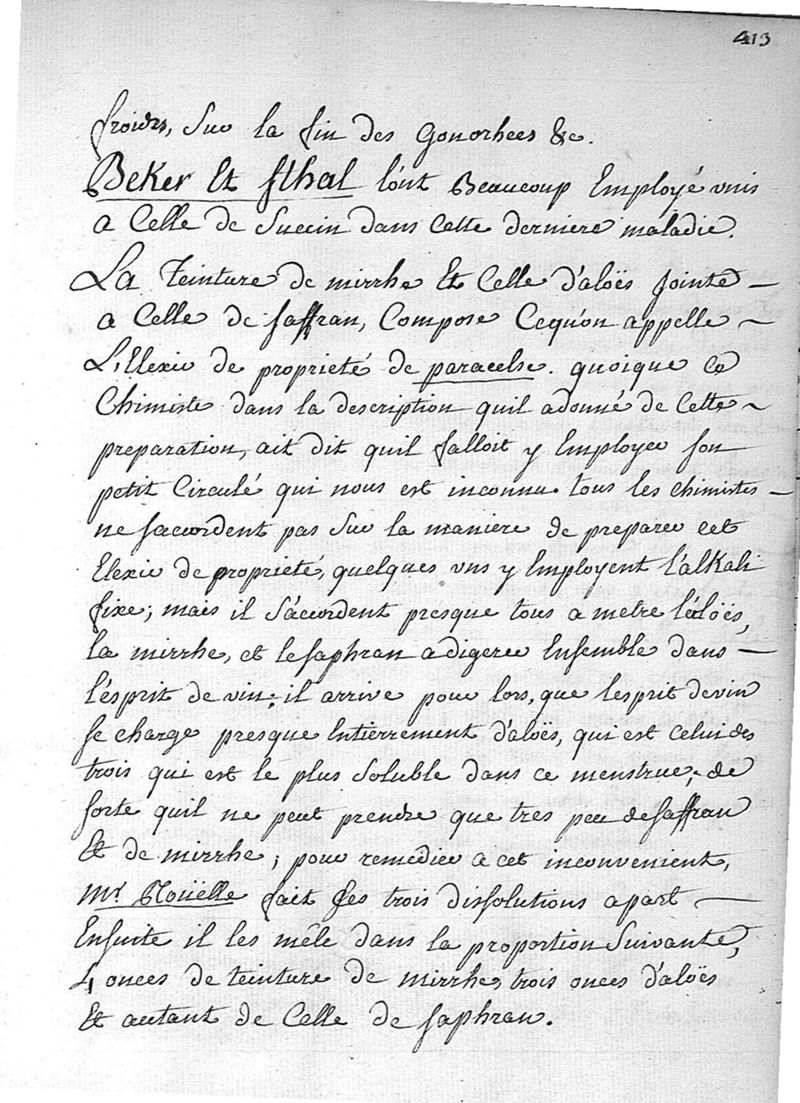 413
froides, Sur la fin des Gonorhees &c.
Beker Et Sthal l'ont Beaucoup Employé unis
a Celle de Succin dans cette derniere maladie.
La Teinture de mirrhe Et Celle d'aloës jointe
a Celle de saffran, Compose Cequ'on appelle
L'Elexir de proprieté de paracelse. quoique ce
Chimiste dans la description quil adonné de Cette
preparation, ait dit quil falloit y Employer son
petit Circulé qui nous est inconnu. tous les chimistes
ne saccordent pas Sur la maniere de preparer cet
Elexir de proprieté, quelques uns y Employent l'alKali
fixe; mais il s'accordent presque tous a metre l'aloës,
la mirrhe, et le saphran a digerer Ensemble dans
l'ésprit de vin; il arrive pour lors, que lesprit devin
se charge presque Entierrement d'aloës, qui est celui des
trois qui est le plus Soluble dans ce menstrue; de
sorte quil ne peut prendre que tres peu de saffran
Et de mirrhe; pour remedier a cet inconvenient,
Mr. Roüelle fait ses trois dissolutions apart
Ensuite il les mêle dans la proportion Suivante,
4 onces de teinture de mirrhe, trois onces d'aloës
Et autant de Celle de saphran.